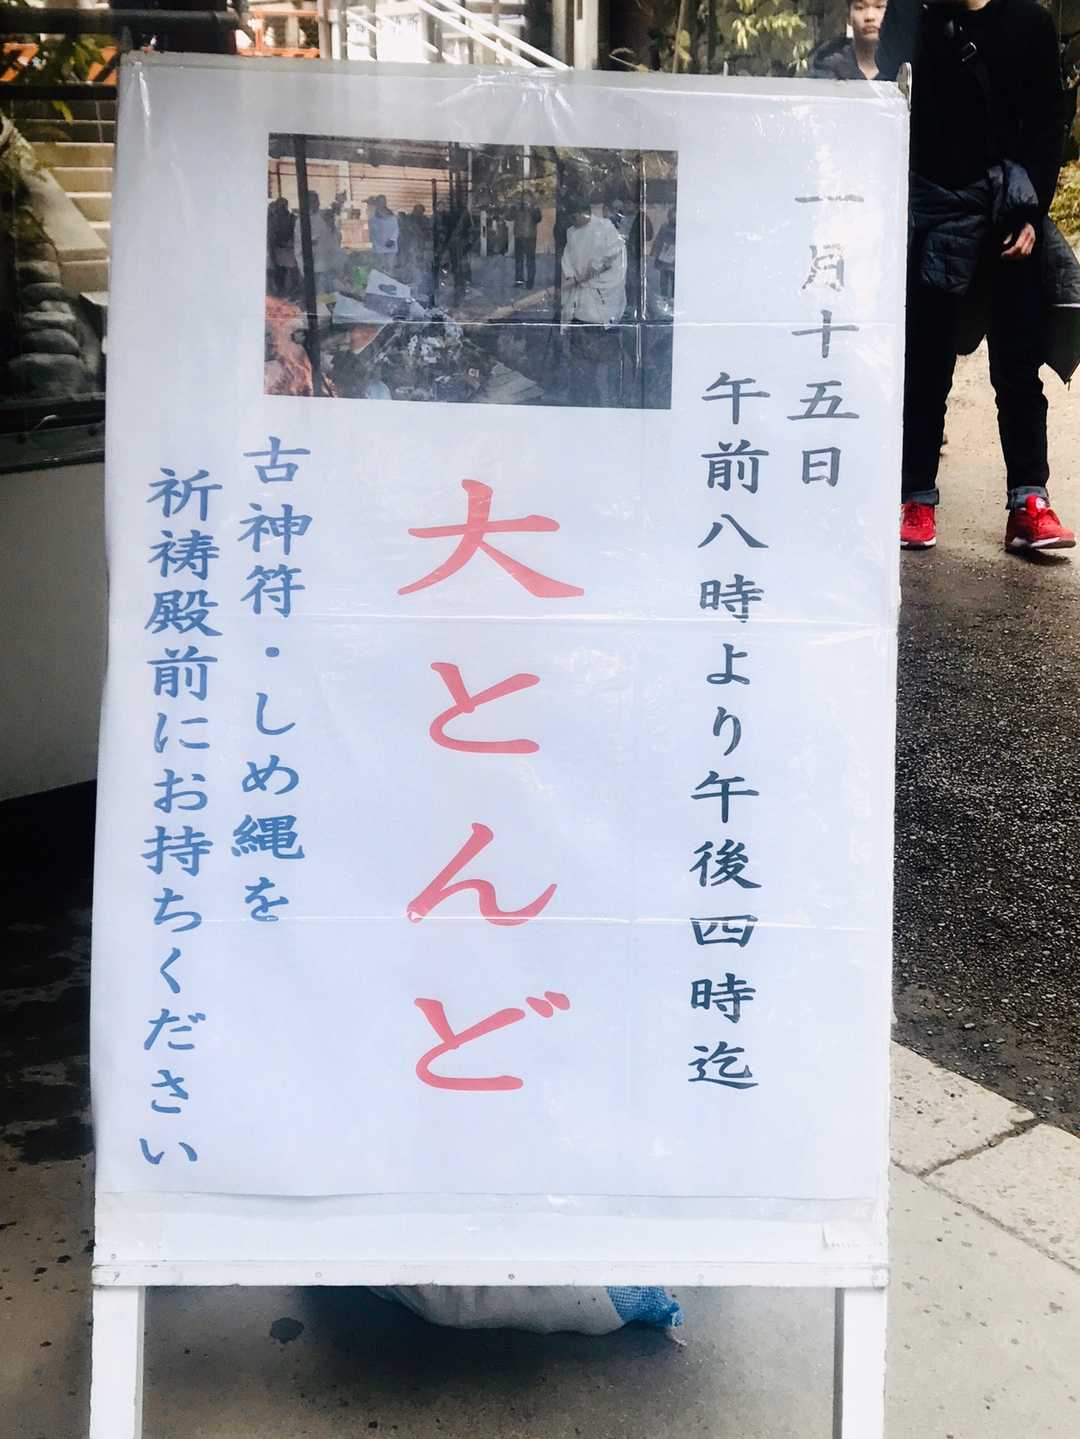 一月十五日
午前八時より午後四時迄
大とんど
古神符・しめ縄を
祈祷殿前にお持ちください